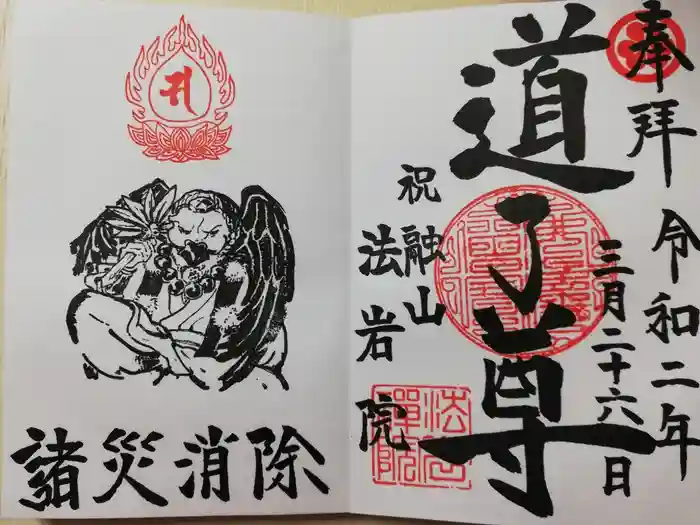 奉拝
令和二年
三月二十六日
道了尊
祝融山
法岩院
諸災消除